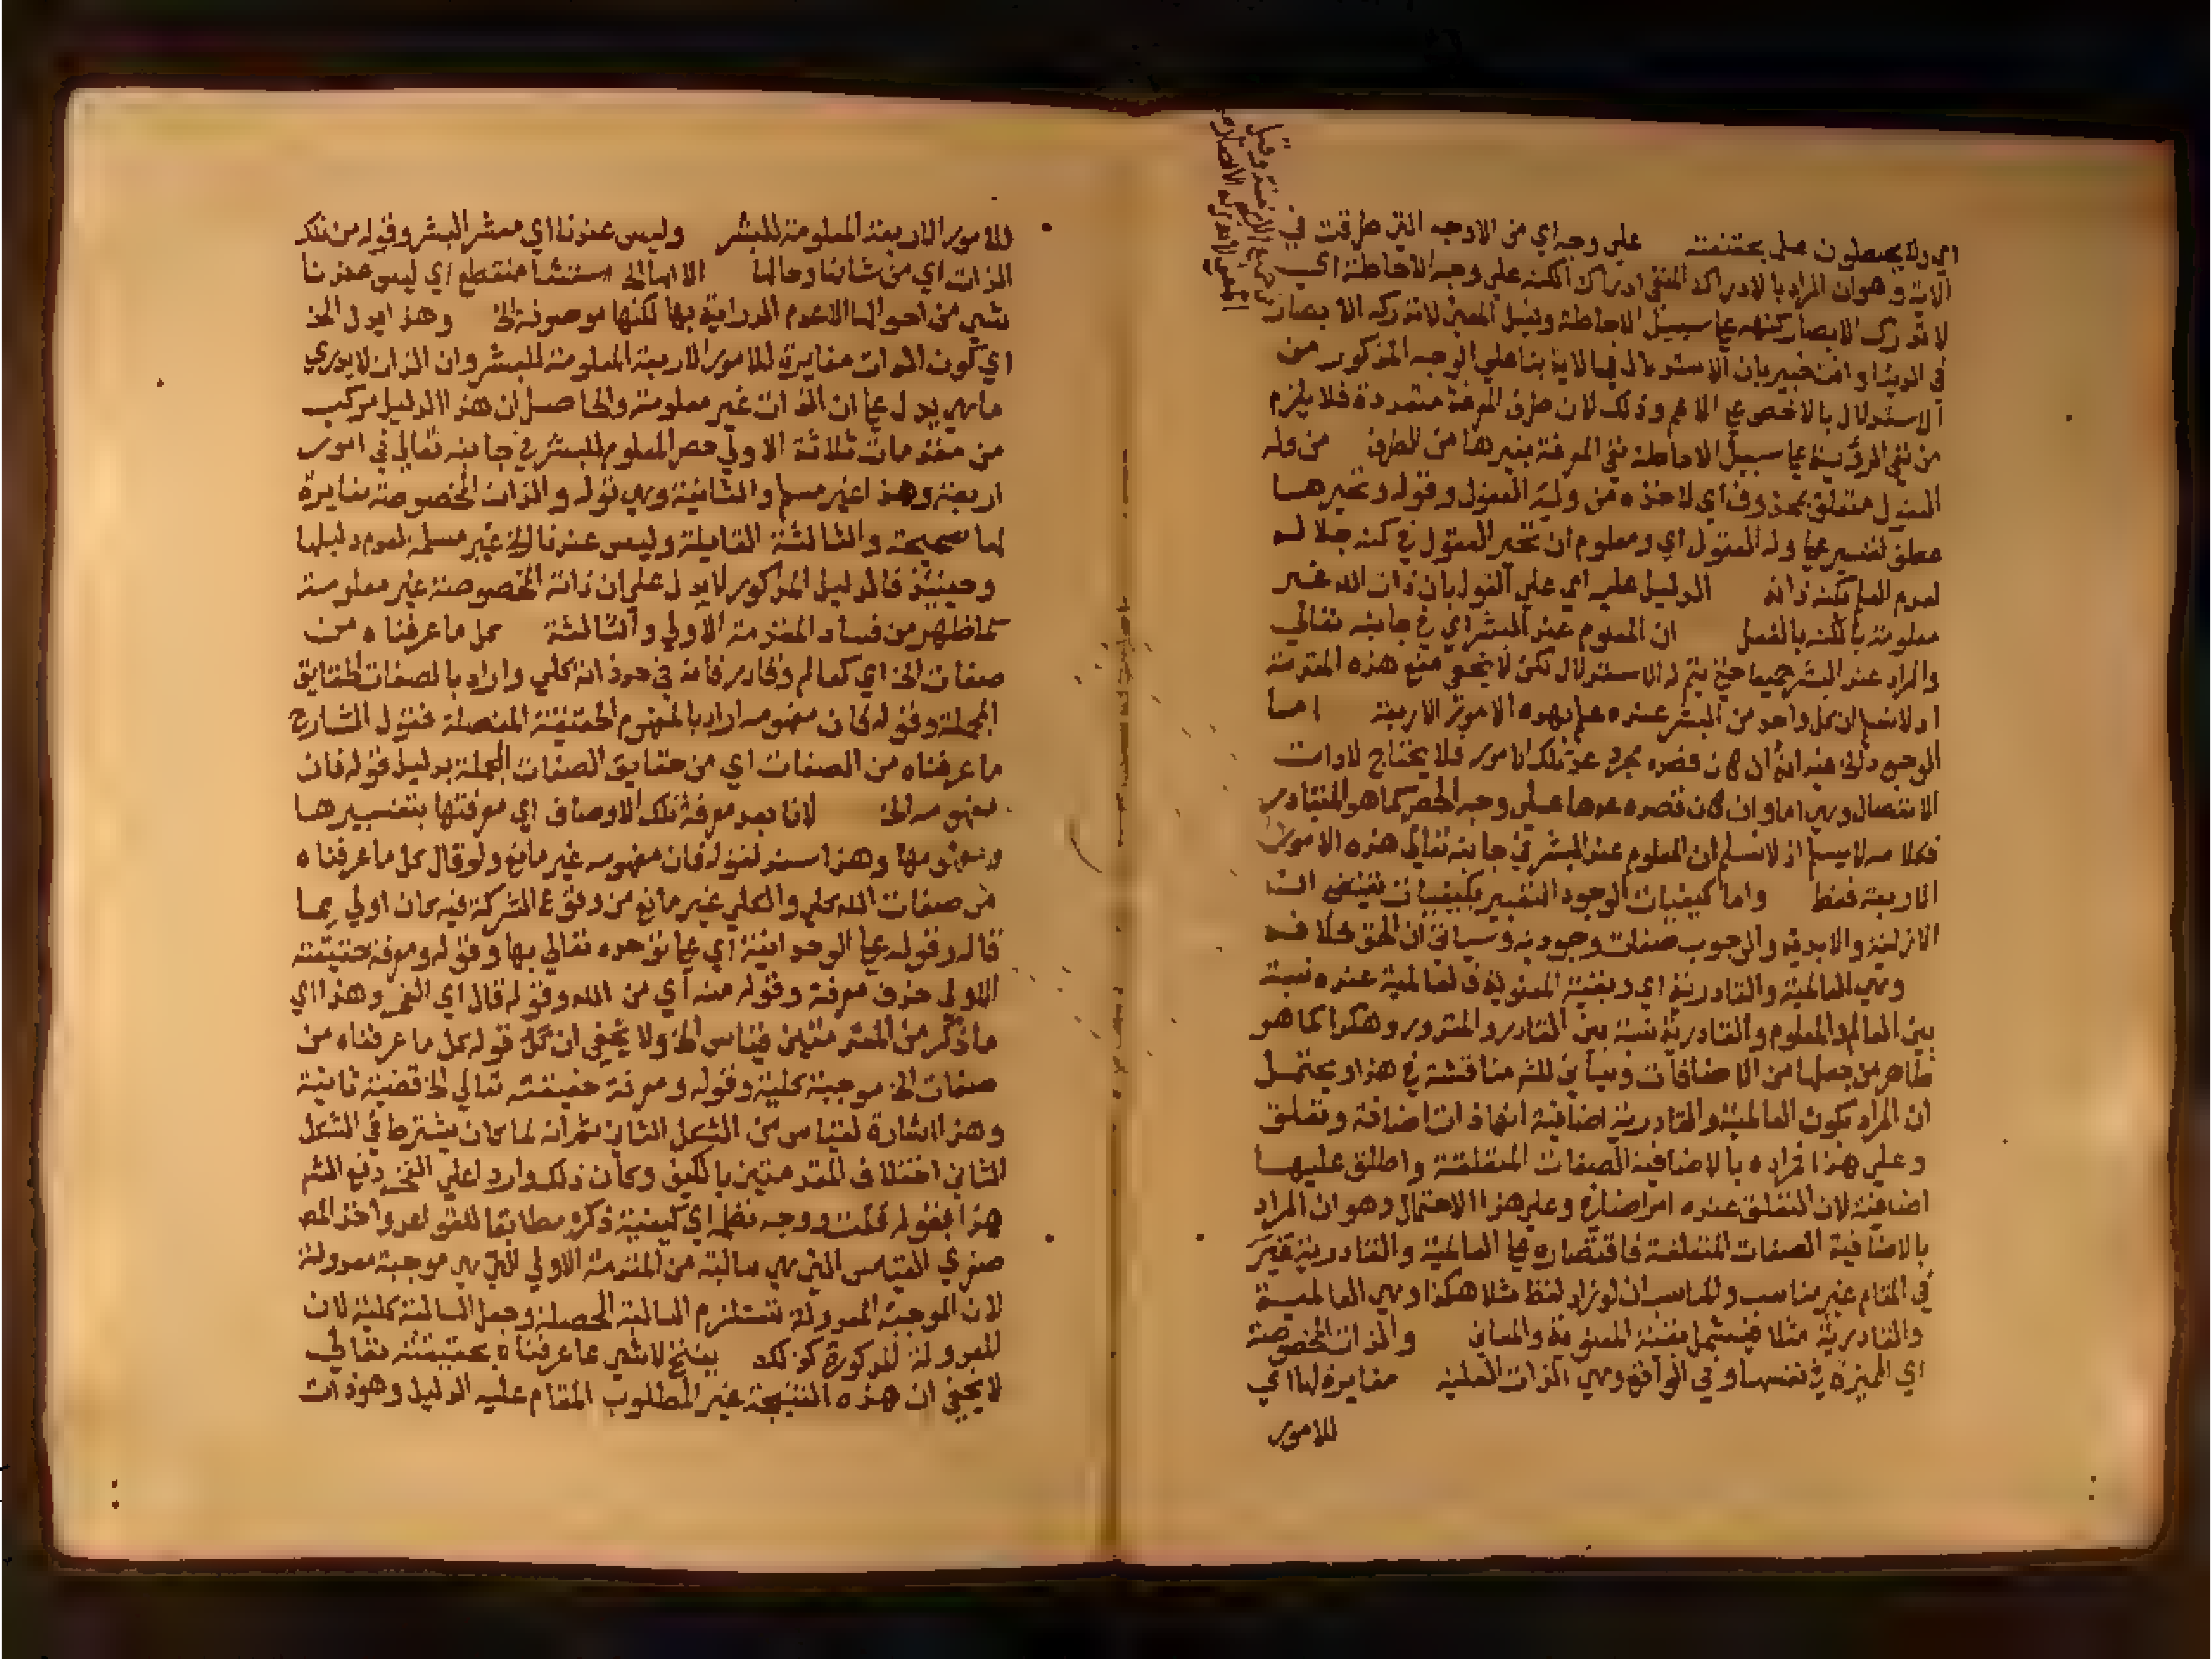 اي ولا يحيطون علما بحقيقته على وجه اي من الاوجه التي طرقت في
الاية وهو ان المراد بالادراك المنفي ادراك الكنه على وجه الاحاطة اي
لا تدرك الابصار كنهه على سبيل الاحاطة وقيل المعنى لا تدركه الابصار
في الدنيا وانت خبير بان الاستدلال في الاية بنا على الوجه المذكور من
الاستدلال بالاخص على الاعم وذلك لان طرق المعرفة متعددة فلا يلزم
من نفي الرؤية على سبيل الاحاطة نفي المعرفة بغيرها من الطرق من وله
العقول متعلق بمحذوف اي لاخذه من وله العقول وقوله وتحيرها
عطف تفسير على وله العقول اي ومعلوم ان تحير العقول في كنه جلاله
لعدم العلم بكنه ذاته الدليل عليه اي على القول بان ذات الله غير
معلومة بالكنه بالفعل ان المعلوم عند البشر اي في جانبه تعالى
والمراد عند البشر جميعا حتى يتم له الاستدلال لكن لا يخفى منع هذه المقدمة
اذ لا نعلم ان كل واحد من البشر عنده علم بهذه الامور الاربعة اما
الوجود الخ فيه انه ان كان قصده مجرد عد تلك الامور فلا يحتاج لادات
الانفصال وهي اما وان كان قصده عدها على وجه الحصر كما هو المتبادر
فكلامه لا يسلم اذ لا نسلم ان المعلوم عند البشر في جانبه تعالى هذه الامور
الاربعة فقط واما كيفيات الوجود التعبير بكيفيات يقتضي ان
الازلية والابدية والوجوب صفات وجودية وسياتي ان الحق خلافه
وهي العالمية والقادرية اي وبقية المعنوية فالعالمية عنده نسبة
بين العالم والمعلوم والقادرية نسبة بين القادر والمقدور وهكذا كما هو
ظاهر من جعلها من الاضافات وسياتي لك مناقشة في هذا ويحتمل
ان المراد بكون العالمية والقادرية اضافية انها ذات اضافة وتعلق
وعلى هذا فمراده بالاضافية الصفات المتعلقة واطلق عليها
اضافية لان التعلق عنده امر اضافي وعلى هذا الاحتمال وهو ان المراد
بالاضافية الصفات المتعلقة فاقتصاره على العالمية والقادرية غير
في المقام غير مناسب والمناسب ان لو زاد لفظ مثلا هكذا وهي العالمية
والقادرية مثلا فيشمل بقية المعنوية والمعاني والذات المخصوصة
اي المميزة في نفسها وفي الواقع وهي الذات العلية مغايرة لها اي
للامور
للامور الاربعة المعلومة للبشر وليس عندنا اي معشر البشر وقوله من تلك
الذات اي من شانها وحالها الا انها الخ استثنا منقطع اي ليس عندنا
شي من احوالها لا عدم الدراية بها لكنها موصوفة الخ وهذا يدل الخ
اي كون الذات مغايرة للامور الاربعة المعلومة للبشر وان الذات لا يدرى
ما هي يدل على ان الذات غير معلومة والحاصل ان هذا الدليل مركب
من مقدمات ثلاثة الاولى حصر المعلوم للبشر في جانبه تعالى في امور
اربعة وهذا غير مسلم والثانية وهي قوله والذات المخصوصة مغايرة
لها صحيحة والثالثة القايلة وليس عندنا الخ غير مسلمة لعدم دليلها
وحينئذ فالدليل المذكور لا يدل على ان ذاته المخصوصة غير معلومة
كما ظهر من فساد المقدمة الاولى والثالثة كل ما عرفناه من
صفات الخ اي كعالم وقادر فانه في حد ذاته كلي واراد بالصفات الحقايق
المجملة وقوله فان مفهومه اراد بالمفهوم الحقيقة المفصلة فقول الشارح
ما عرفناه من الصفات اي من حقايق الصفات المجملة بدليل قوله فان
مفهومه الخ لانا بعد معرفة تلك الاوصاف اي معرفتها بتفسيرها
ومفهومها وهذا سند لقوله فان مفهومه غير مانع ولو قال كل ما عرفناه
من صفات الله كلي والكلي غير مانع من وقوع الشركة فيه كان اولى مما
قاله وقوله على الوحدانية اي على توحده تعالى بها وقوله ومعرفة حقيقته
الاولى حذف معرفة وقوله منه اي من الله وقوله قال اي الفخر وهذا اي
ما ذكر من المقدمتين قياس الخ ولا يخفى ان قوله كل ما عرفناه من
صفات الخ موجبة كلية وقوله ومعرفة حقيقته تعالى الخ قضية ثانية
وهذا اشارة لقياس من الشكل الثاني ثم انه لما كان يشترط في الشكل
الثاني اختلاف المقدمتين بالكيف وكان ذلك واردا على الفخر دفع الشم
هذا بقوله قلت ووجه نظمه اي كيفية ذكره مطابقا للقواعد واخذ المص
صغرى القياس التي هي سالبة من المقدمة الاولى التي هي موجبة معدولة
لان الموجبة المعدولة تستلزم السالبة المحصلة وجعل السالبة كلية لان
المعدولة المذكورة كذلك ينتج لا شي مما عرفناه بحقيقته تعالى
لا يخفى ان هذه النتيجة غير المطلوب المقام عليه الدليل وهو ذات